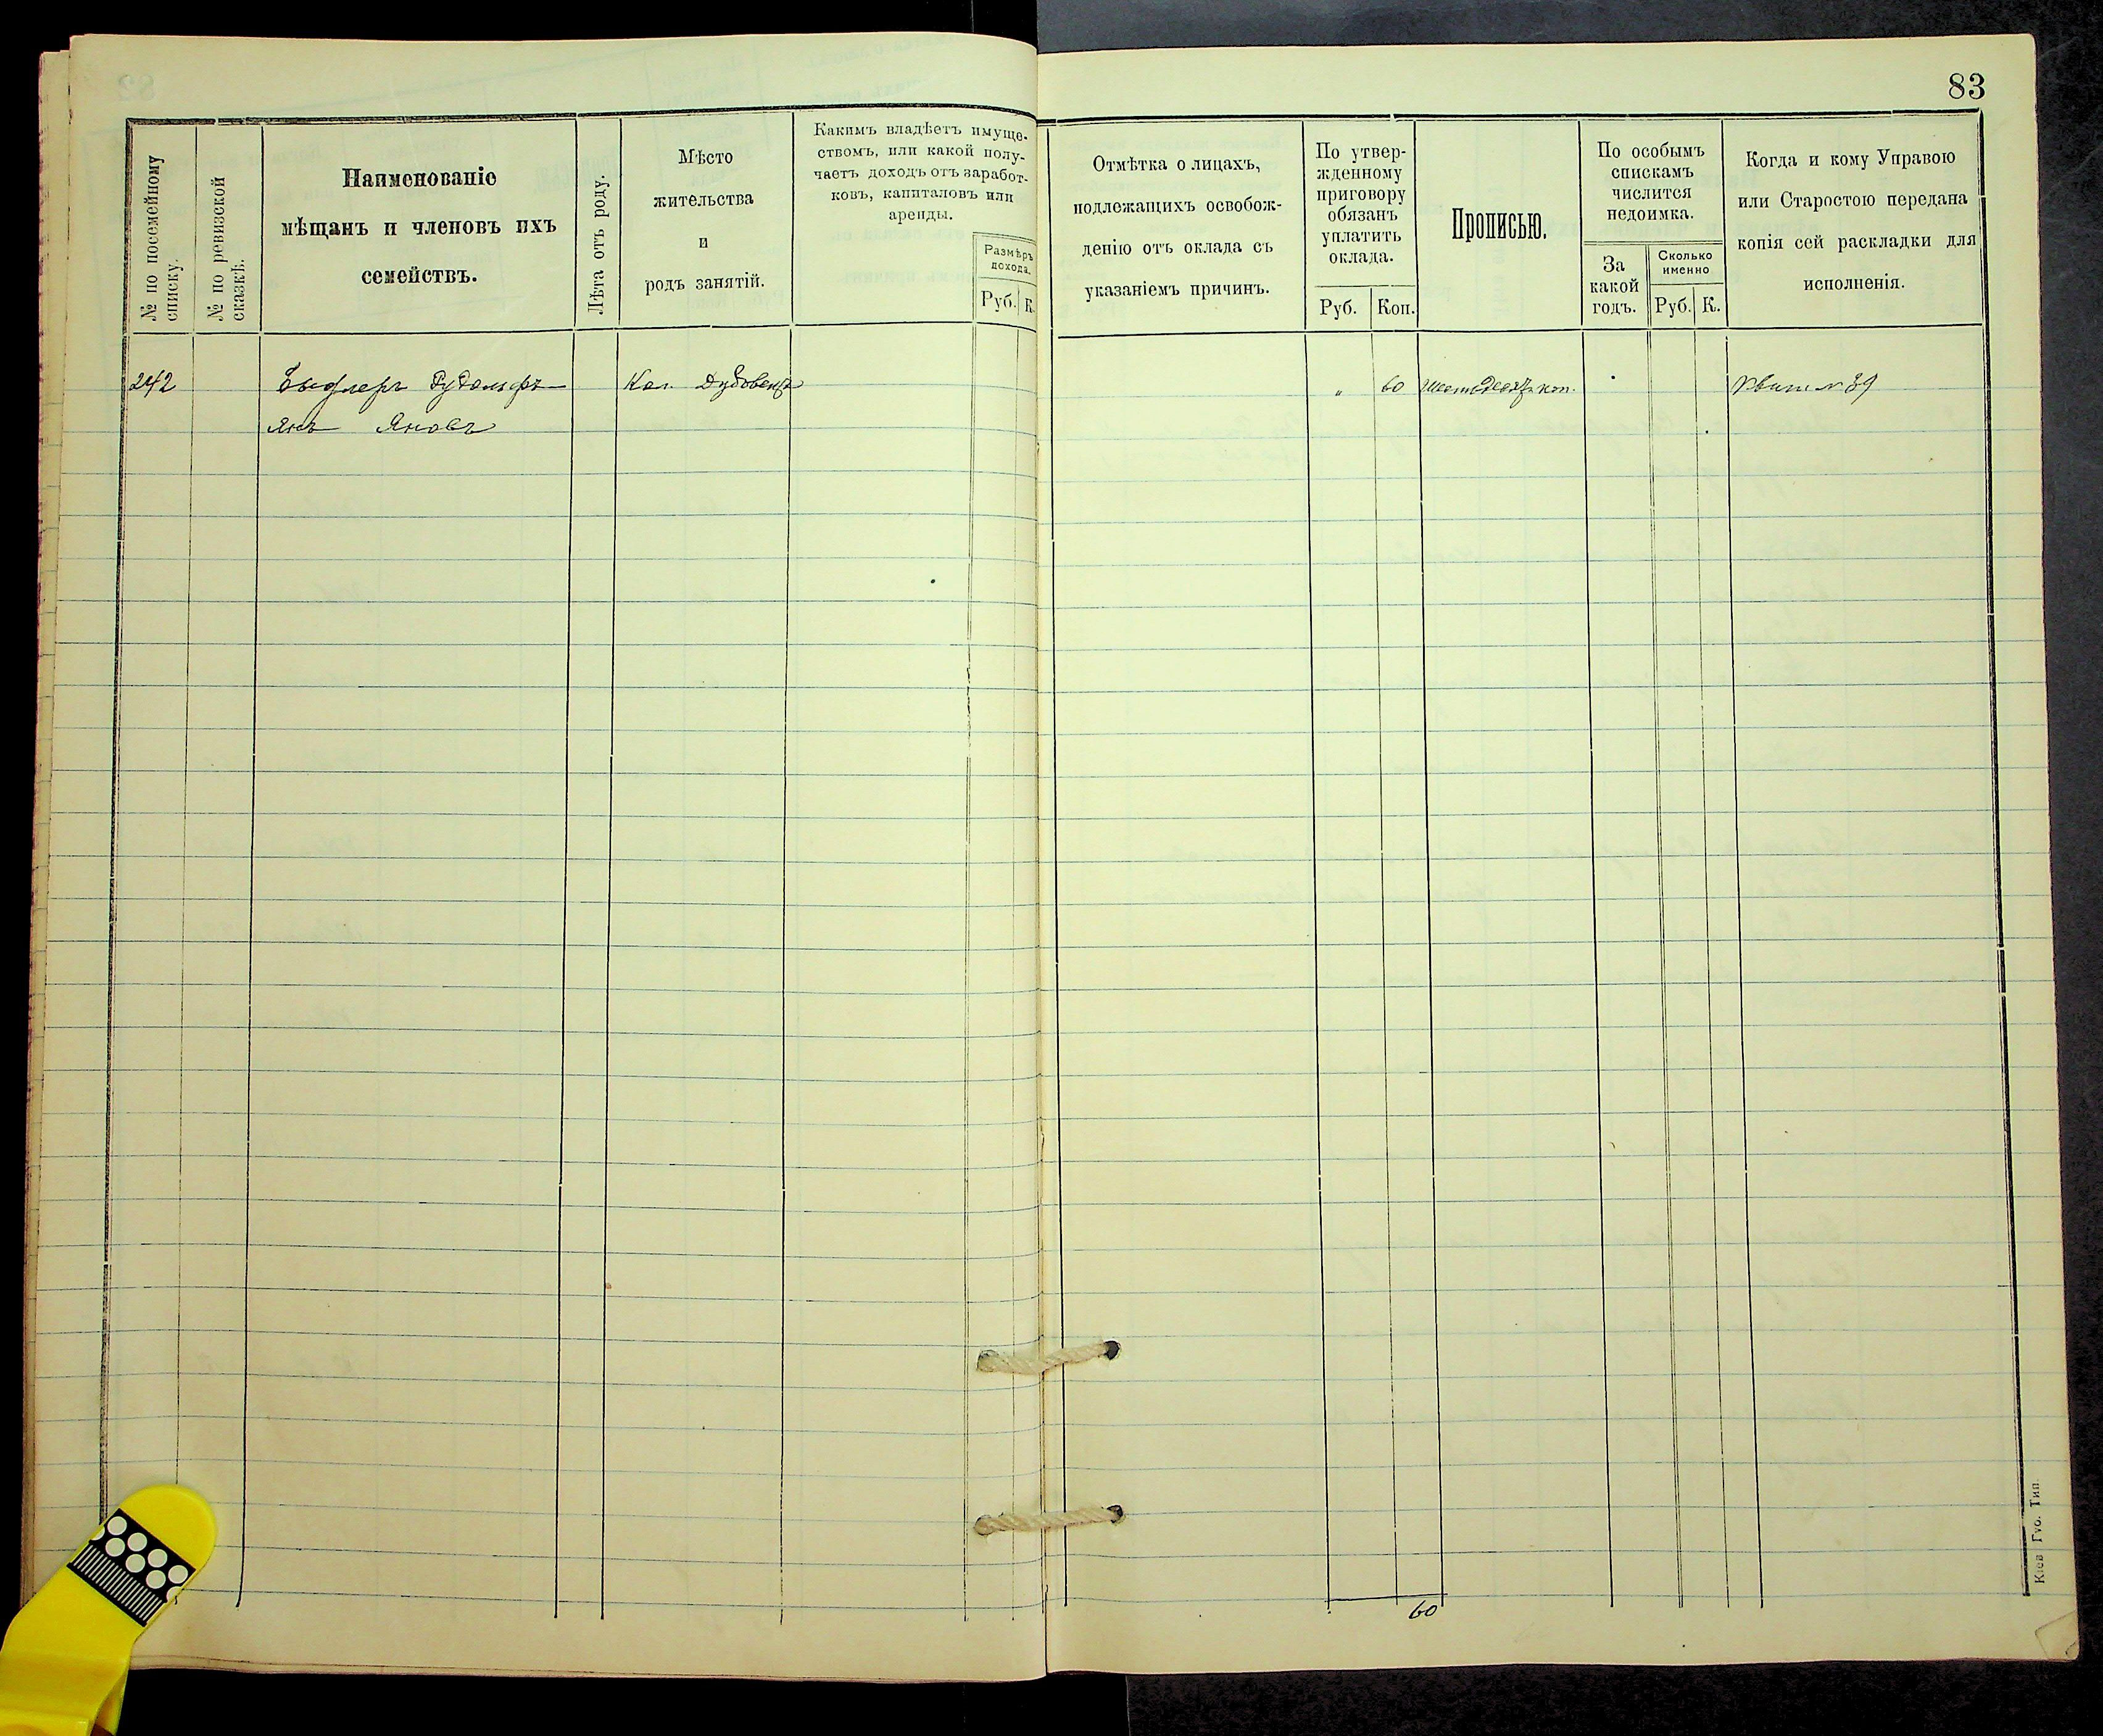 83
№ по посемейному
списку.
№ по ревизской
сказкѣ.
Наименованіе
мѣщанъ и членовъ ихъ
семействъ.
Лѣта отъ роду.
Мѣсто
жительства
и
родъ занятій.
Какимъ владѣетъ имуще-
ствомъ, или какой полу-
чаетъ доходъ отъ заработ-
ковъ, капиталовъ или
аренды.
Размѣръ
дохода.
Руб. К.
Отмѣтка о лицахъ,
подлежащихъ освобож-
денію отъ оклада съ
указаніемъ причинъ.
По утвер-
жденному
приговору
обязанъ
уплатить
оклада.
Руб. Коп.
Прописью.
По особымъ
спискамъ
числится
недоимка.
За
какой
годъ.
Сколько
именно
Руб. К.
Когда и кому Управою
или Старостою передана
копія сей раскладки для
исполненія.
242 Рудольфъ Кол. " 60 шестьдесятъ коп. Квит № 39
Янъ Яновъ
60
Кіев Губ. Тип.